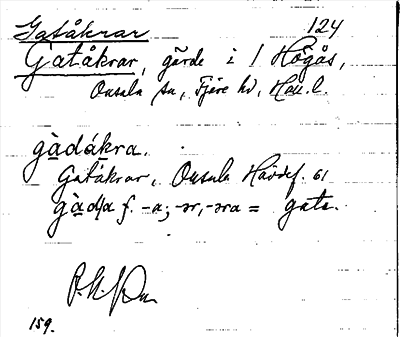 Gatåkrar 124
Gatåkrar, gärde i 1 Högås,
Onsala sn, Fjäre hd, Hall. l.
gàdákra.
Gatåkrar, Onsala Hävdef. 61
gàda f. -a; -ər, -əra = gata.
159.